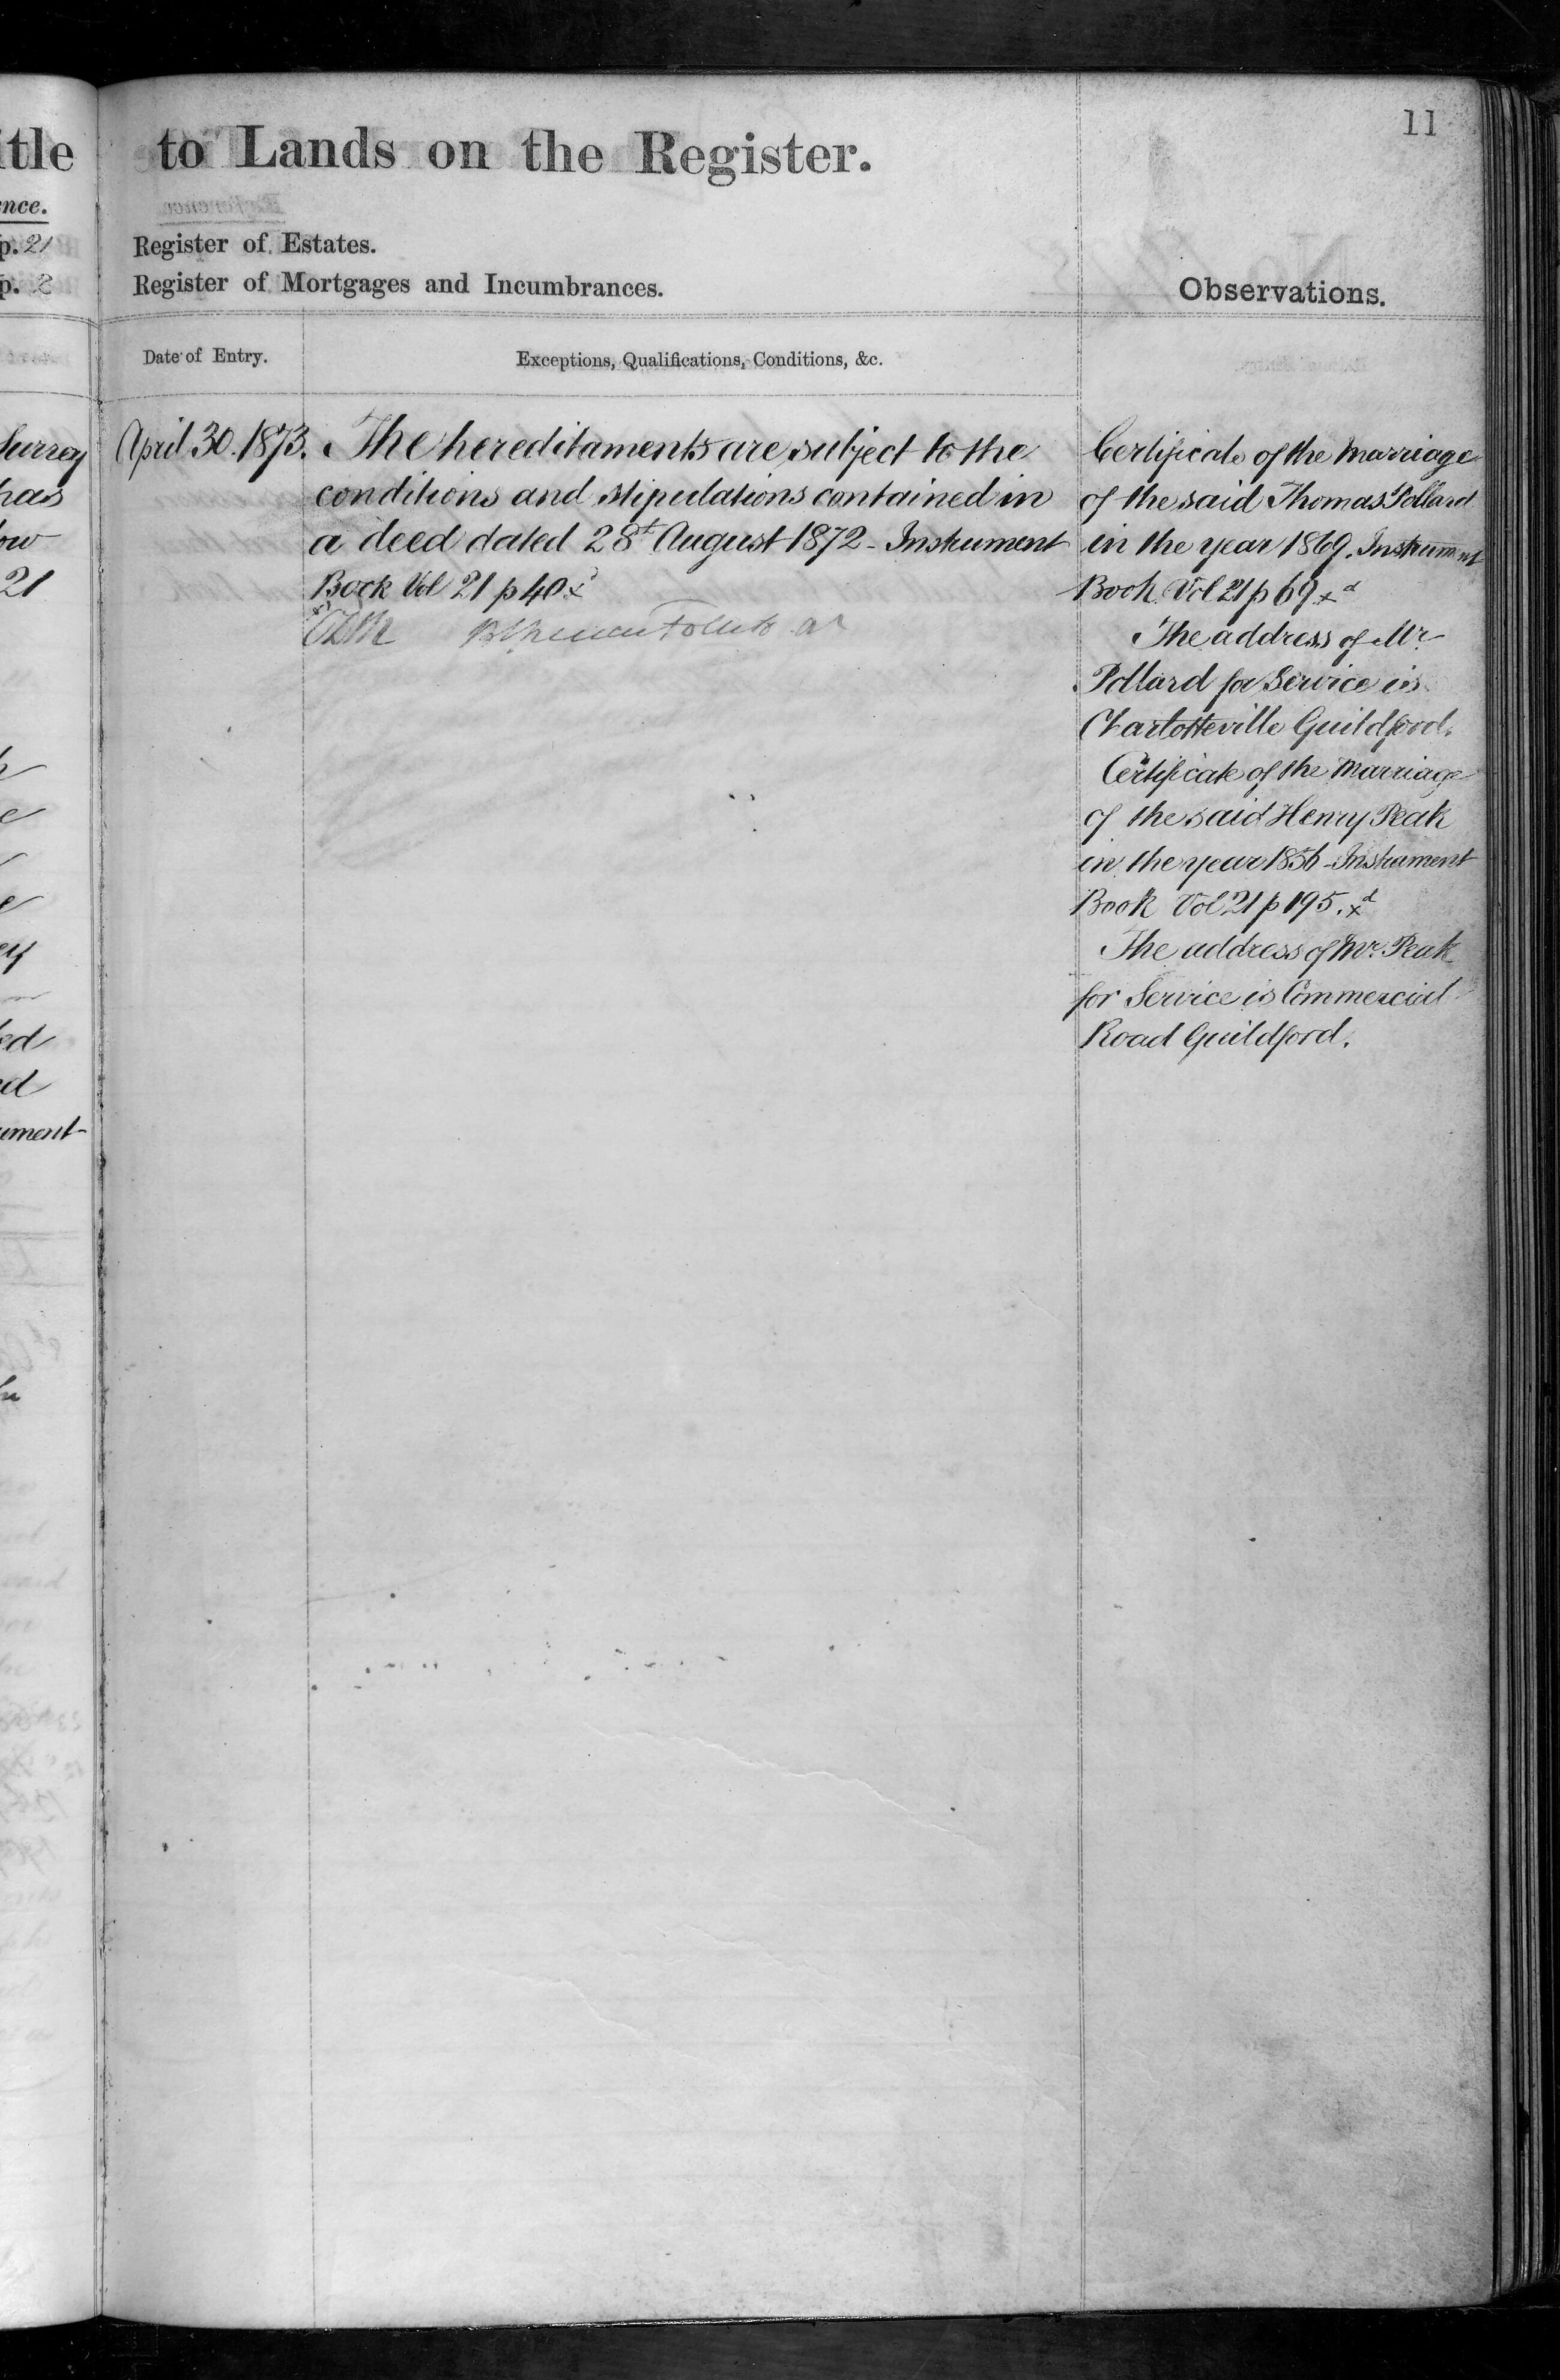 11
to Lands on the Register.
Register of Estates.
Register of Mortgages and Incumbrances.
Observations.
Date of Entry.
Exceptions, Qualifications, Conditions, &c.
April 30. 1873.
The hereditaments are subject to the
conditions and stipulations contained in
a deed dated 28t August 1872 - Instrument
Book Vol 21 p 40 x
Certificate of the Marriage
of the said Thomas Pollard
in the year 1869. Instrument
Book Vol 21 p 69 xd
The address of Mr
Pollard for Service is
Charlotteville Guildford.
Certificate of the Marriage
of the said Henry Peak
in the year 1856 - Instrument
Book Vol 21 p 195. xd
The address of Mr. Peak
for Service is Commercial
Road Guildford.
itle
nce.
p. 21
p. 2
Surrey
has
ow
21
ed
ument